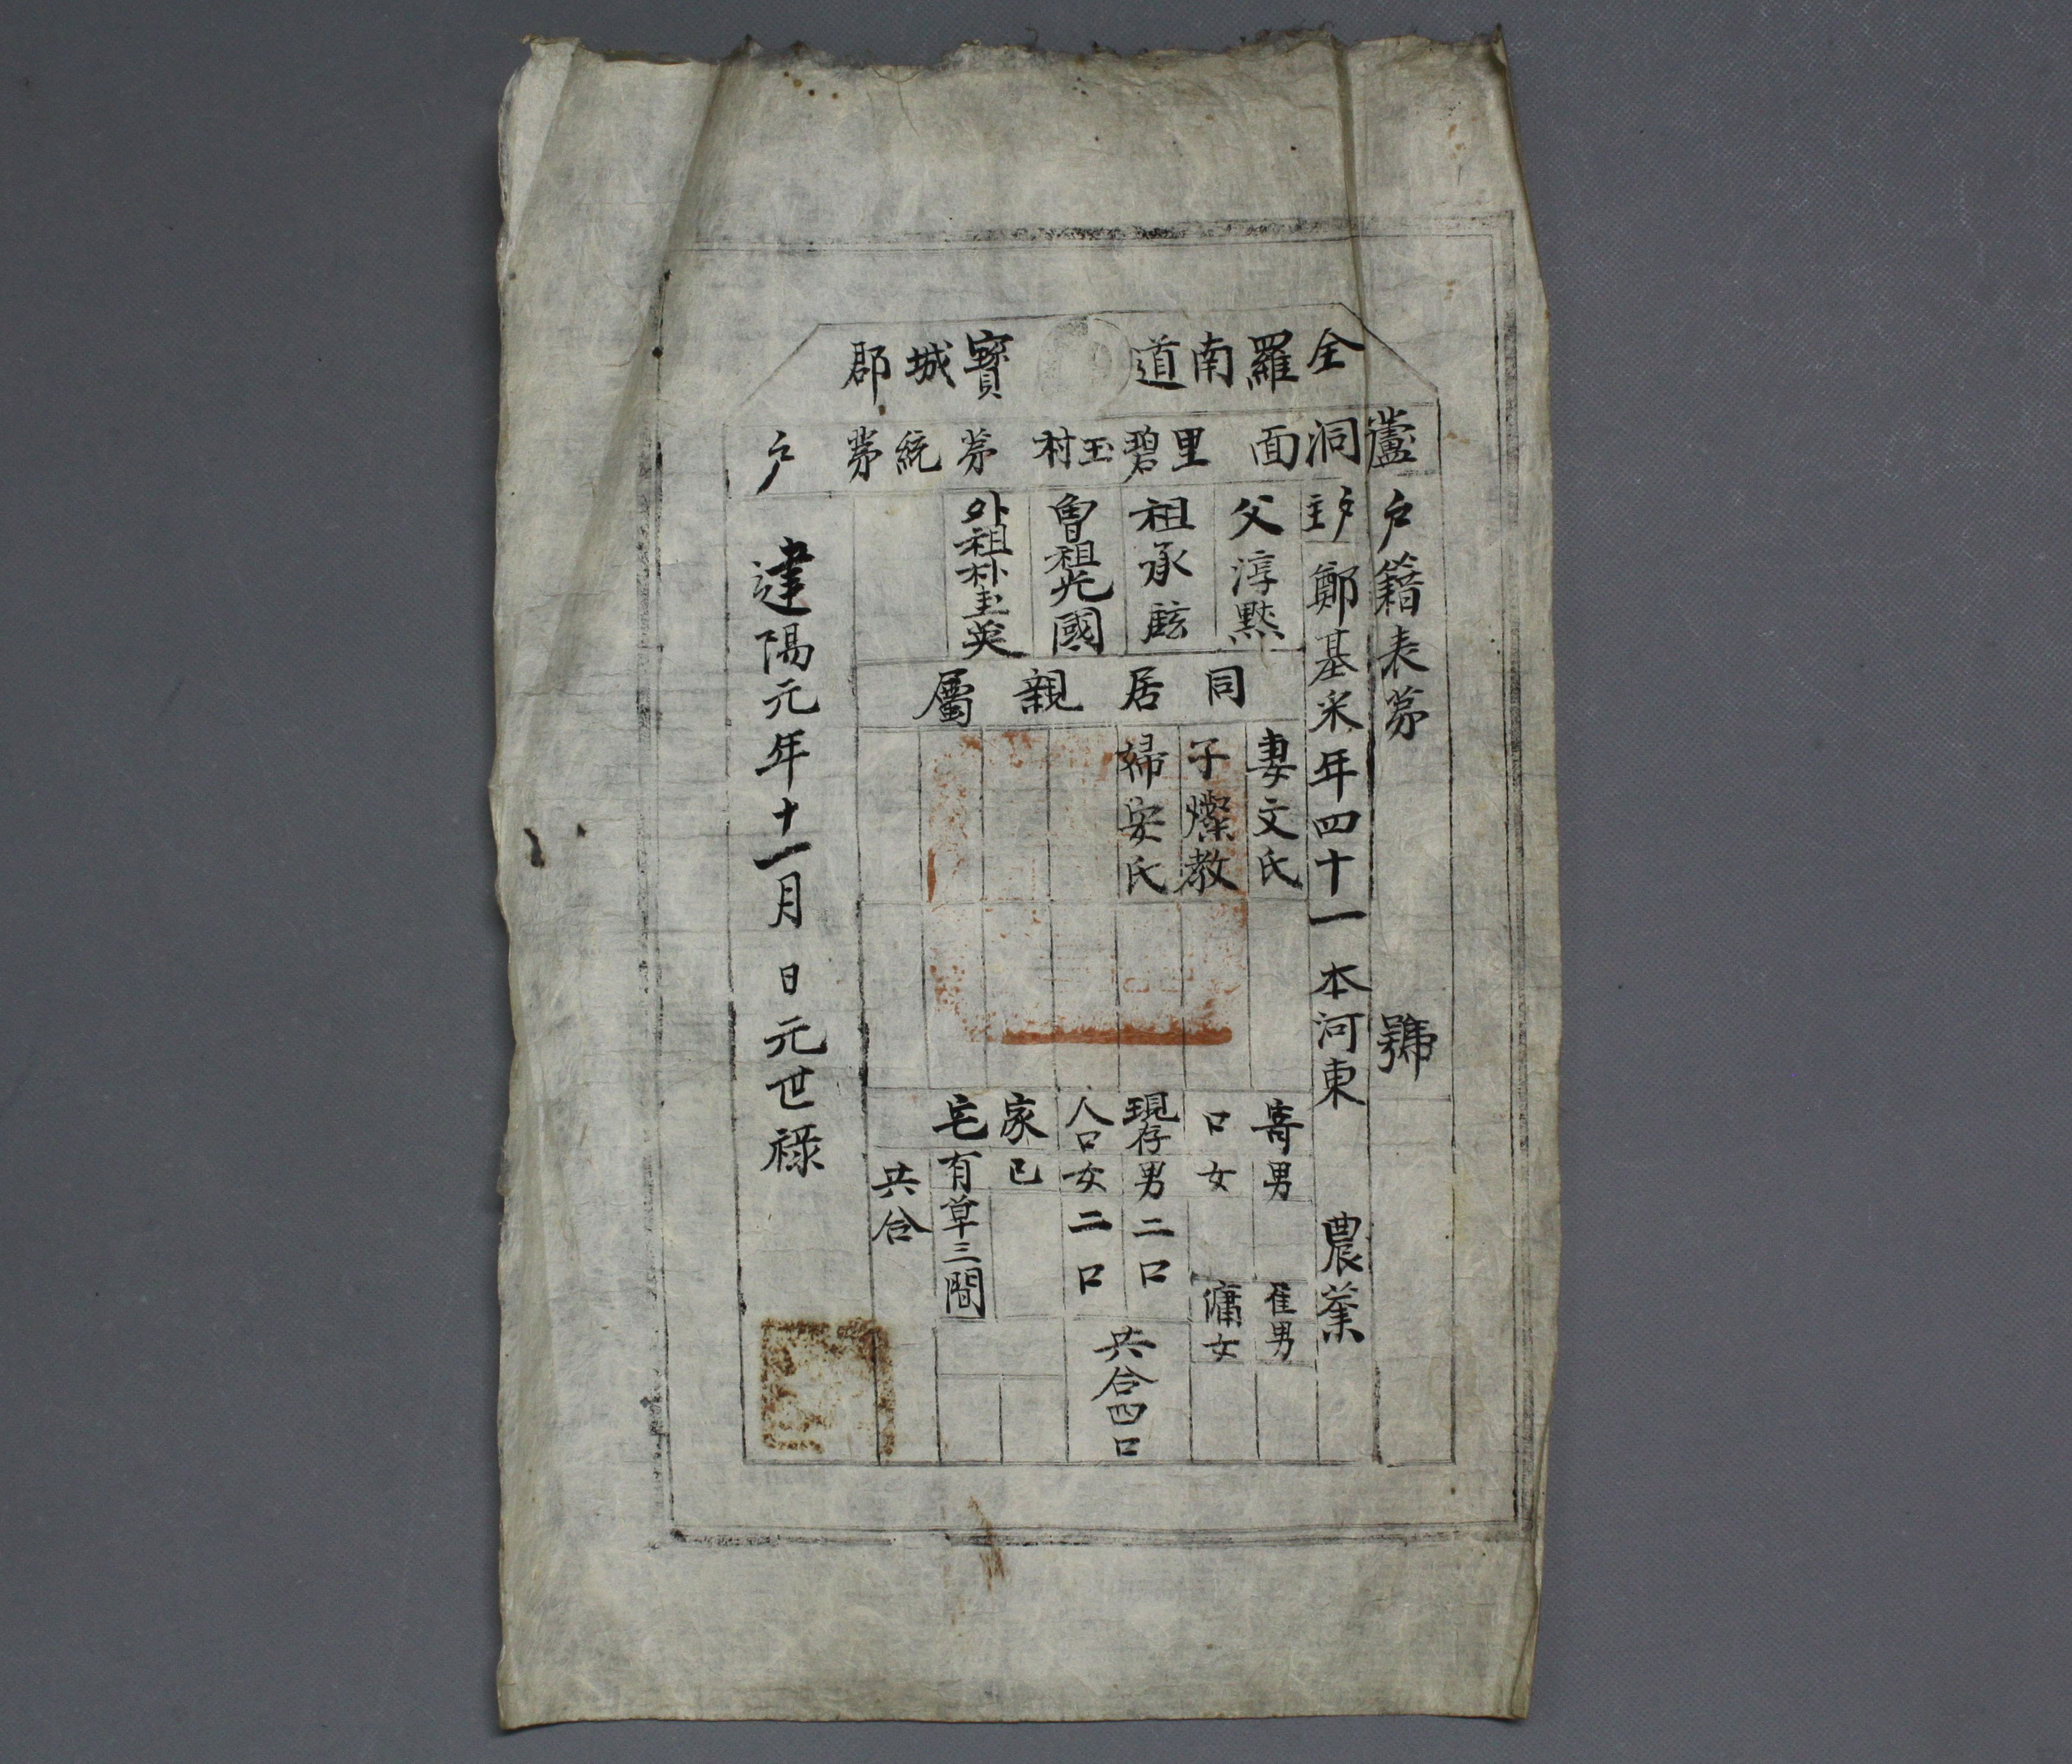 全羅南道 寶城郡
蘆洞面 里碧玉村 第 統第 戶
戶籍表第 號
戶主 鄭基采 年四十一 本河東 農業
父 淳黙
祖 承
曾祖 光國
外祖 朴 英
同居親屬
妻文氏
子燦教
婦安氏
寄口 男 雇男
女 傭女
現存人口 男二口
女二口
共合四口
家宅 已
有草三間
共合
建陽元年十一月 日 元世祿